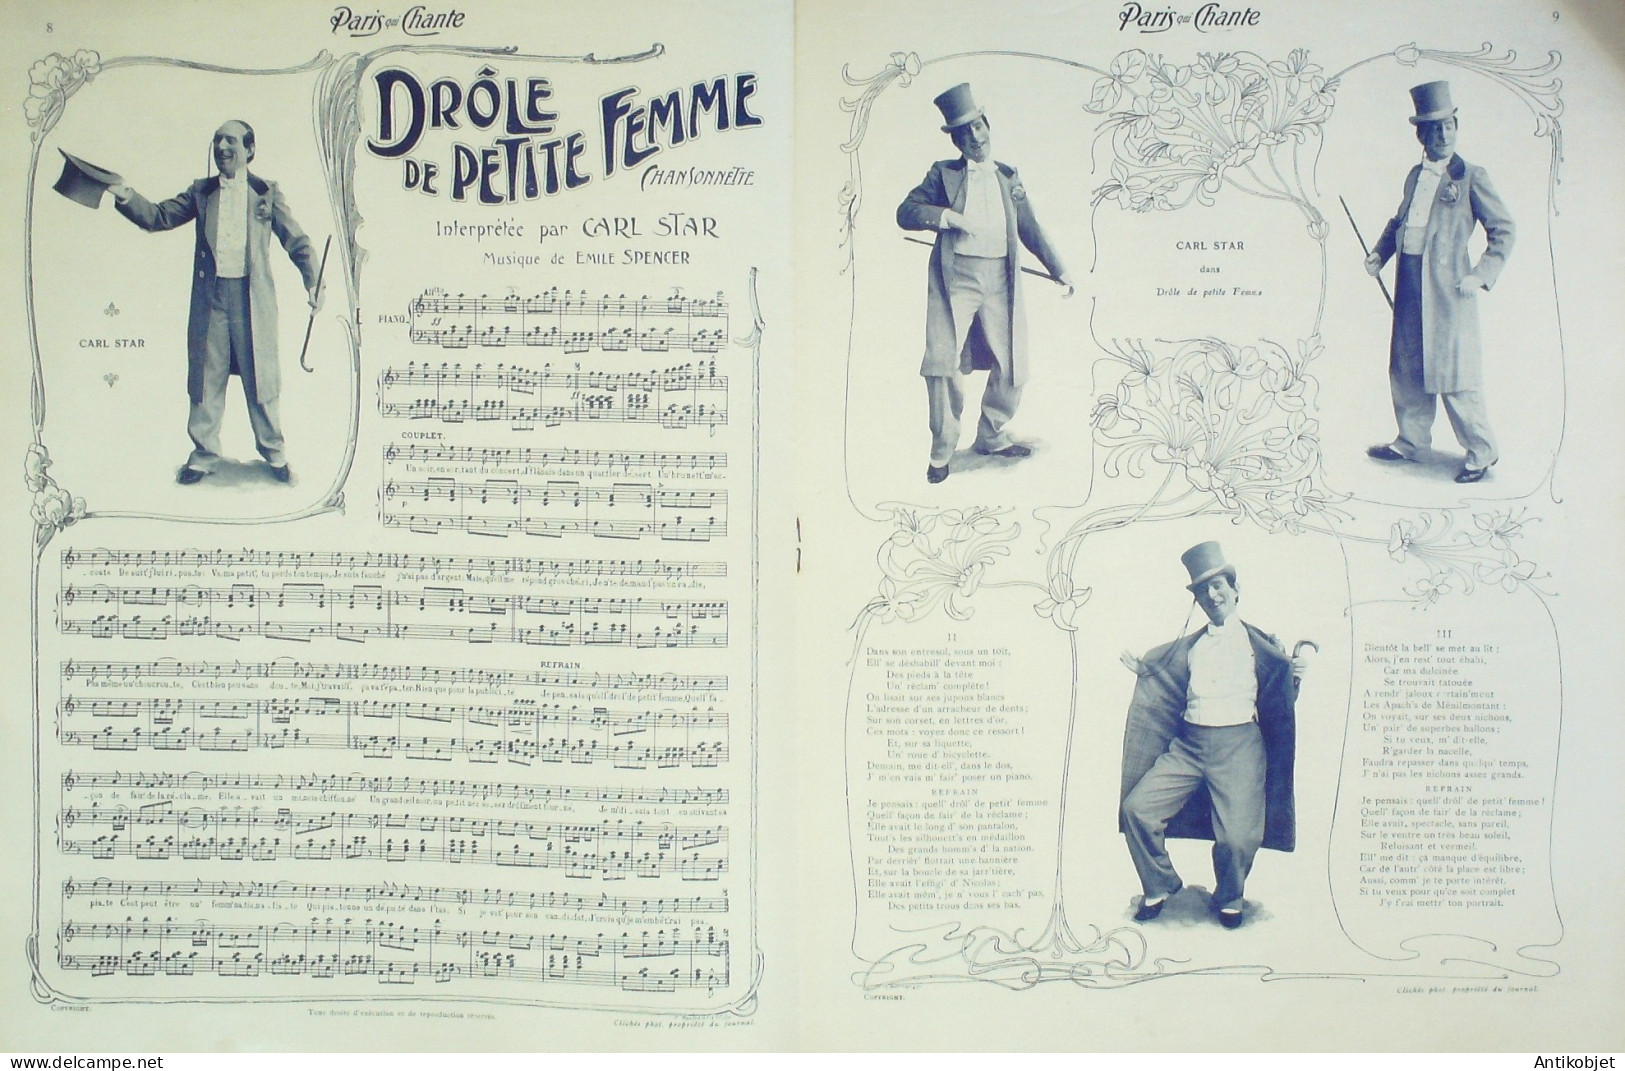 8
Paris qui Chante
DRÔLE
DE PETITE FEMME
CHANSONNETTE
Interprétée par CARL STAR
Musique de EMILE SPENCER
CARL STAR
All<sup>tto</sup>
PIANO.
ff
ff
COUPLET.
Un soir, en sor_tant du concert, J'flânais dans un quartier dé_sert Un' brunett' m'ac-
p
-coste De suit' j'lui ri_pos_te: Va, ma petit', tu perds ton temps, Je suis fauché j'n'ai pas d'argent; Mais, qu'ell' me répond gros ché_ri, Je n'te demand' pas un ra_dis,
REFRAIN.
Pas même un' choucrou_te, C'est bien peu sans dou_te, Moi, j'travaill', ça va t'épa_ter, Rien que pour la publici_té Je pen_sais quell' drôl' de petit' femme, Quell' fa-
-çon de fair' de la ré_cla_me, Elle a_vait un mi_nois chiffonné Un grand œil noir, un petit nez as_sez drôl'ment tour_né, Je m'di_sais tout en suivant sa
pis_te C'est peut être un' femm' na_tio_na_lis_te Qui pis_tonne un dé_pu_té dans l'tas, Si je vot' pour son can_di_dat, J'crois qu'je m'embêt'rai pas.
COPYRIGHT.
Tous droits d'exécution et de reproduction réservés.
Clichés phot. propriété du journal.
Paris qui Chante
9
CARL STAR
dans
Drôle de petite Femme
II
Dans son entresol, sous un toit,
Ell' se déshabill' devant moi :
Des pieds à la tête
Un' réclam' complète !
On lisait sur ses jupons blancs
L'adresse d'un arracheur de dents ;
Sur son corset, en lettres d'or,
Ces mots : voyez donc ce ressort !
Et, sur sa liquette,
Un' roue d' bicyclette.
Demain, me dit-ell', dans le dos,
J' m'en vais m' fair' poser un piano.
REFRAIN
Je pensais : quell' drôl' de petit' femme
Quell' façon de fair' de la réclame ;
Elle avait le long d' son pantalon,
Tout's les silhouett's en médaillon
Des grands homm's d' la nation.
Par derrièr' flottait une bannière
Et, sur la boucle de sa jarr'tière,
Elle avait l'effigi' d' Nicolas ;
Elle avait mêm', je n' vous l' cach' pas,
Des petits trous dans ses bas.
III
Bientôt la bell' se met au lit ;
Alors, j'en rest' tout ébahi,
Car ma dulcinée
Se trouvait tatouée
A rendr' jaloux certain'ment
Les Apach's de Ménilmontant :
On voyait, sur ses deux nichons,
Un' pair' de superbes ballons ;
Si tu veux, m' dit-elle,
R'garder la nacelle,
Faudra repasser dans quelqu' temps,
J' n'ai pas les nichons assez grands.
REFRAIN
Je pensais : quell' drôl' de petit' femme !
Quell' façon de fair' de la réclame ;
Elle avait, spectacle, sans pareil,
Sur le ventre un très beau soleil,
Reluisant et vermeil.
Ell' me dit : ça manque d'équilibre,
Car de l'autr' côté la place est libre ;
Aussi, comm' je te porte intérêt,
Si tu veux pour qu'ce soit complet
J'y f'rai mettr' ton portrait.
COPYRIGHT.
Clichés phot. propriété du journal.
Delcampe.net
Antikobjet